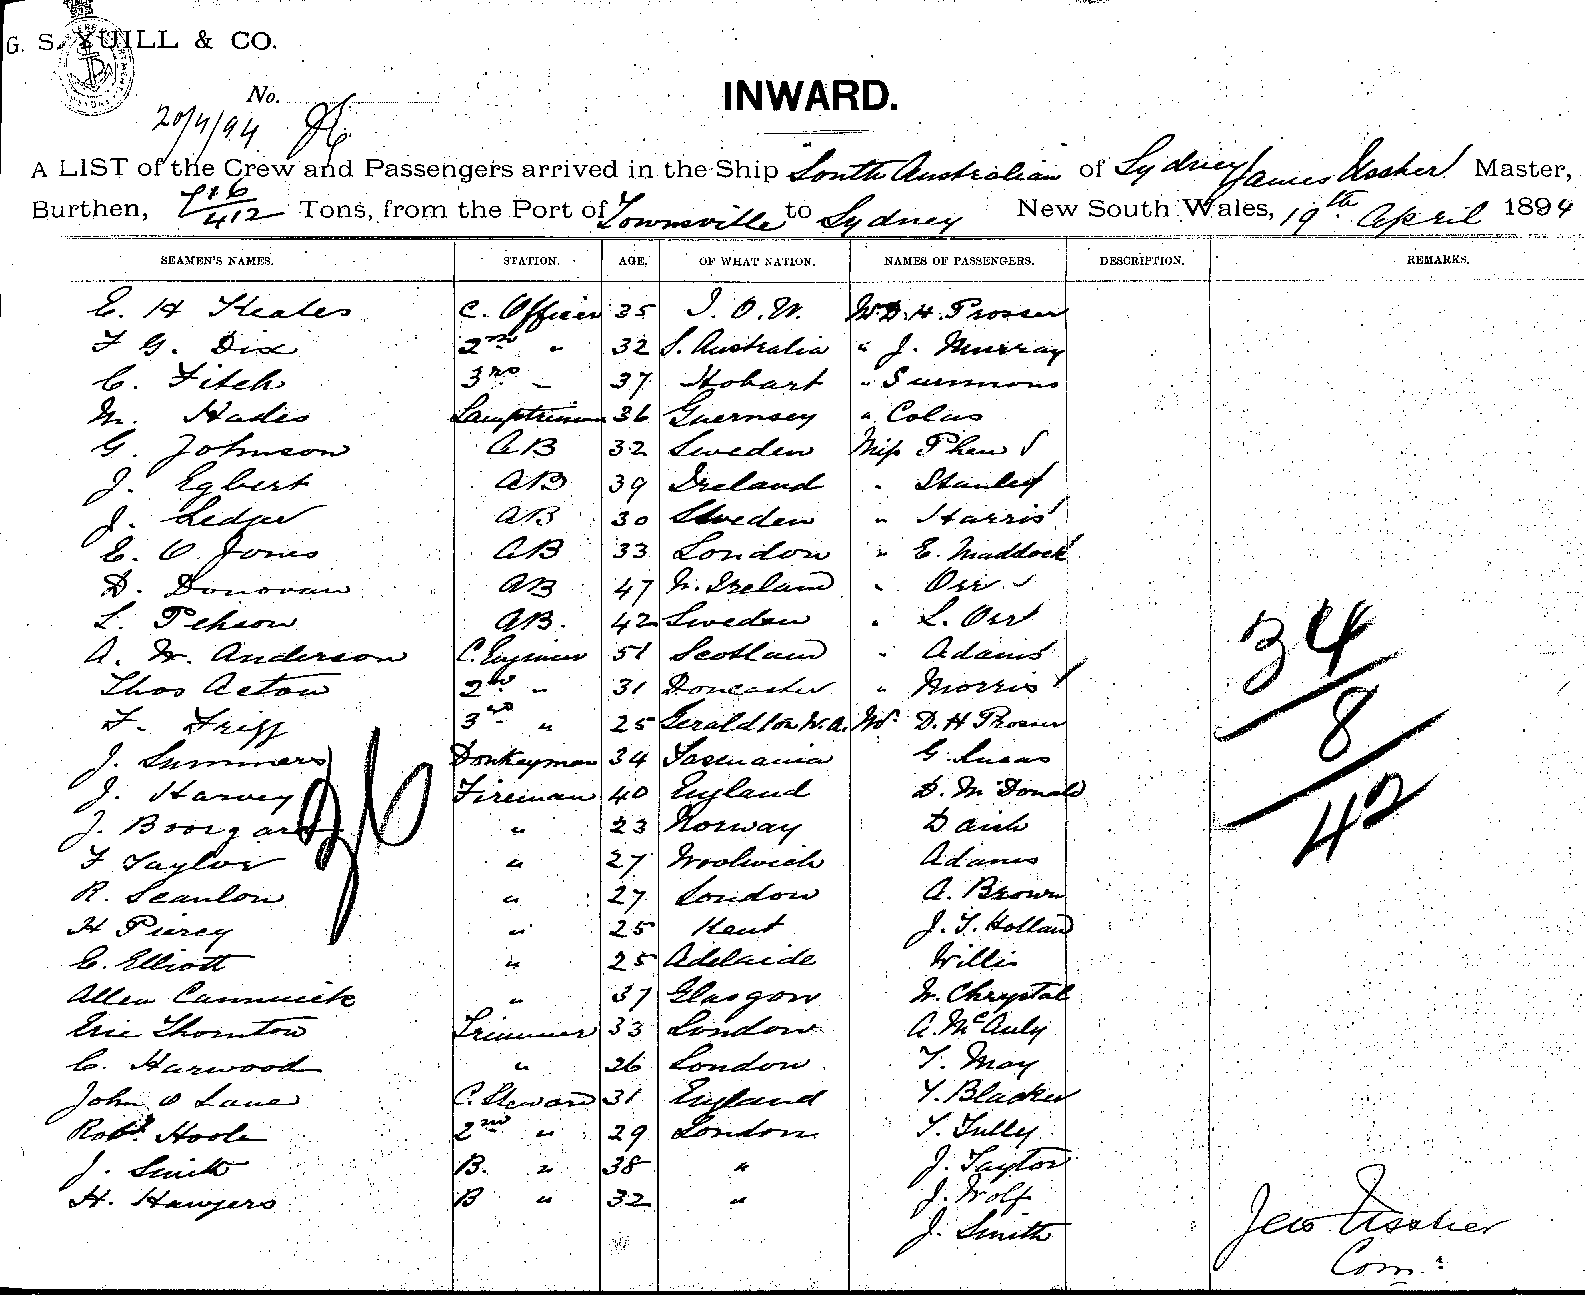 G. S. YUILL & CO.
No.
20/4/94
INWARD.
A LIST of the Crew and Passengers arrived in the Ship "South Australian" of Sydney James Ussher Master,
Burthen, 716/412 Tons, from the Port of Townsville to Sydney New South Wales, 19th April 1894
SEAMEN'S NAMES. STATION. AGE. OF WHAT NATION. NAMES OF PASSENGERS. DESCRIPTION. REMARKS.
E. H Keates C. Officer 35 I. O. W. Mr D. H. Prosser
F G. Dix 2nd " 32 S. Australia " J. Murray
C. Fitch 3rd " 37 Hobart " Summons
M. Hades Lamptrimmer 36 Guernsey " Colas
G. Johnson AB 32 Sweden Miss Phew
J. Egbert AB 39 Ireland " Stanley
J. Ledger AB 30 Sweden " Harris
E. O. Jones AB 33 London " E. Maddock
D. Donovan AB 47 N. Ireland " Orr
L. Pehson AB. 42 Sweden " L. Orr
A. W. Anderson C. Engineer 51 Scotland " Adams
Thos Acton 2nd " 31 Doncaster " Morris
F. Fripp 3rd " 25 Geraldton W.A. Mr D. H Prosser
J. Summers Donkeyman 34 Tasmania G. Lucas
J. Harvey Fireman 40 England D. McDonald
J. Boorgard " 23 Norway Daish
F Taylor " 27 Woolwich Adams
R. Scanlon " 27 London A. Brown
H Piercy " 25 Kent J. T. Holland
C. Elliott " 25 Adelaide Willis
Allen " 37 Glasgow W. Chrystal
Eric Thornton Trimmer 33 London A. McAuly
C. Harwood " 26 London T. May
John O Lane C. Steward 31 England Y. Blacker
Robt Hoole 2nd " 29 London T. Tully
J. Smith B. " 38 " J. Taylor
H. Hawyers B " 32 " J. Wolf
J. Smith
34
8
42
Jas Ussher
Com: